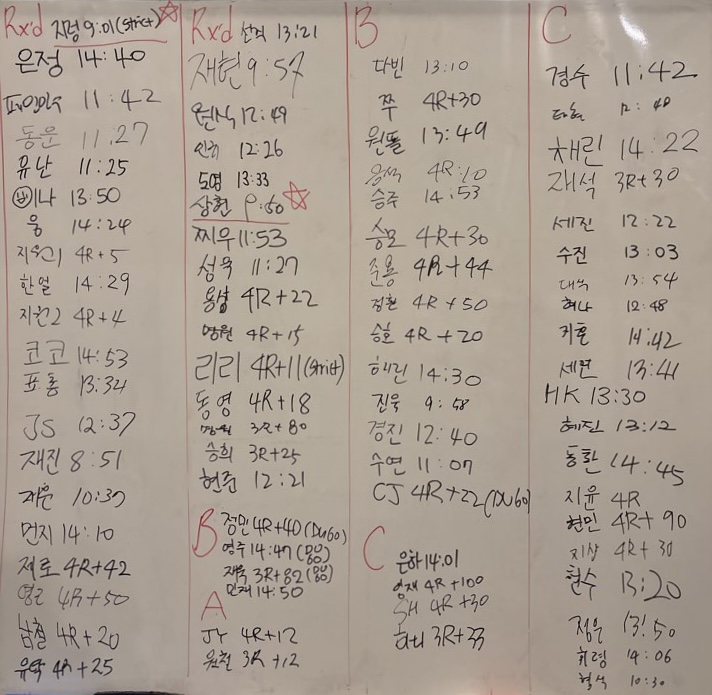 Rx'd 지정 9:01 (strict)
은정 14:40
11:42
동운 11:27
유난 11:25
13:50
웅 14:24
지원1 4R+5
한얼 14:29
지원2 4R+4
코코 14:53
표통 13:34
JS 12:37
재진 8:51
재운 10:37
먼지 14:10
제로 4R+42
영근 4R+50
남철 4R+20
유탁 4R+25
Rx'd 선혁 13:21
재현 9:57
원식 12:49
12:26
도영 13:33
상현 9:50
찌우 11:53
성욱 11:27
용상 4R+22
명원 4R+15
리리 4R+11 (strict)
동영 4R+18
3R+80
승희 3R+25
현준 12:21
B 정민 4R+40 (DU60)
영주 14:47
재욱 3R+82
민재 14:50
A
JY 4R+12
원철 3R+12
B
다빈 13:10
쭈 4R+30
원돌 13:49
4R:10
승주 14:53
승모 4R+30
준용 4R+44
정환 4R+50
승호 4R+20
해린 14:30
진욱 9:58
경진 12:40
수연 11:07
CJ 4R+22 (DU60)
C
은하 14:01
영재 4R+100
SH 4R+30
하니 3R+33
C
경수 11:42
12:40
채린 14:22
재석 3R+30
세진 12:22
수진 13:03
13:54
혜나 12:48
지훈 14:42
세연 13:41
HK 13:30
혜진 13:12
동환 14:45
지윤 4R
현민 4R+90
지상 4R+30
현수 13:20
정은 13:50
희령 14:06
형석 10:30